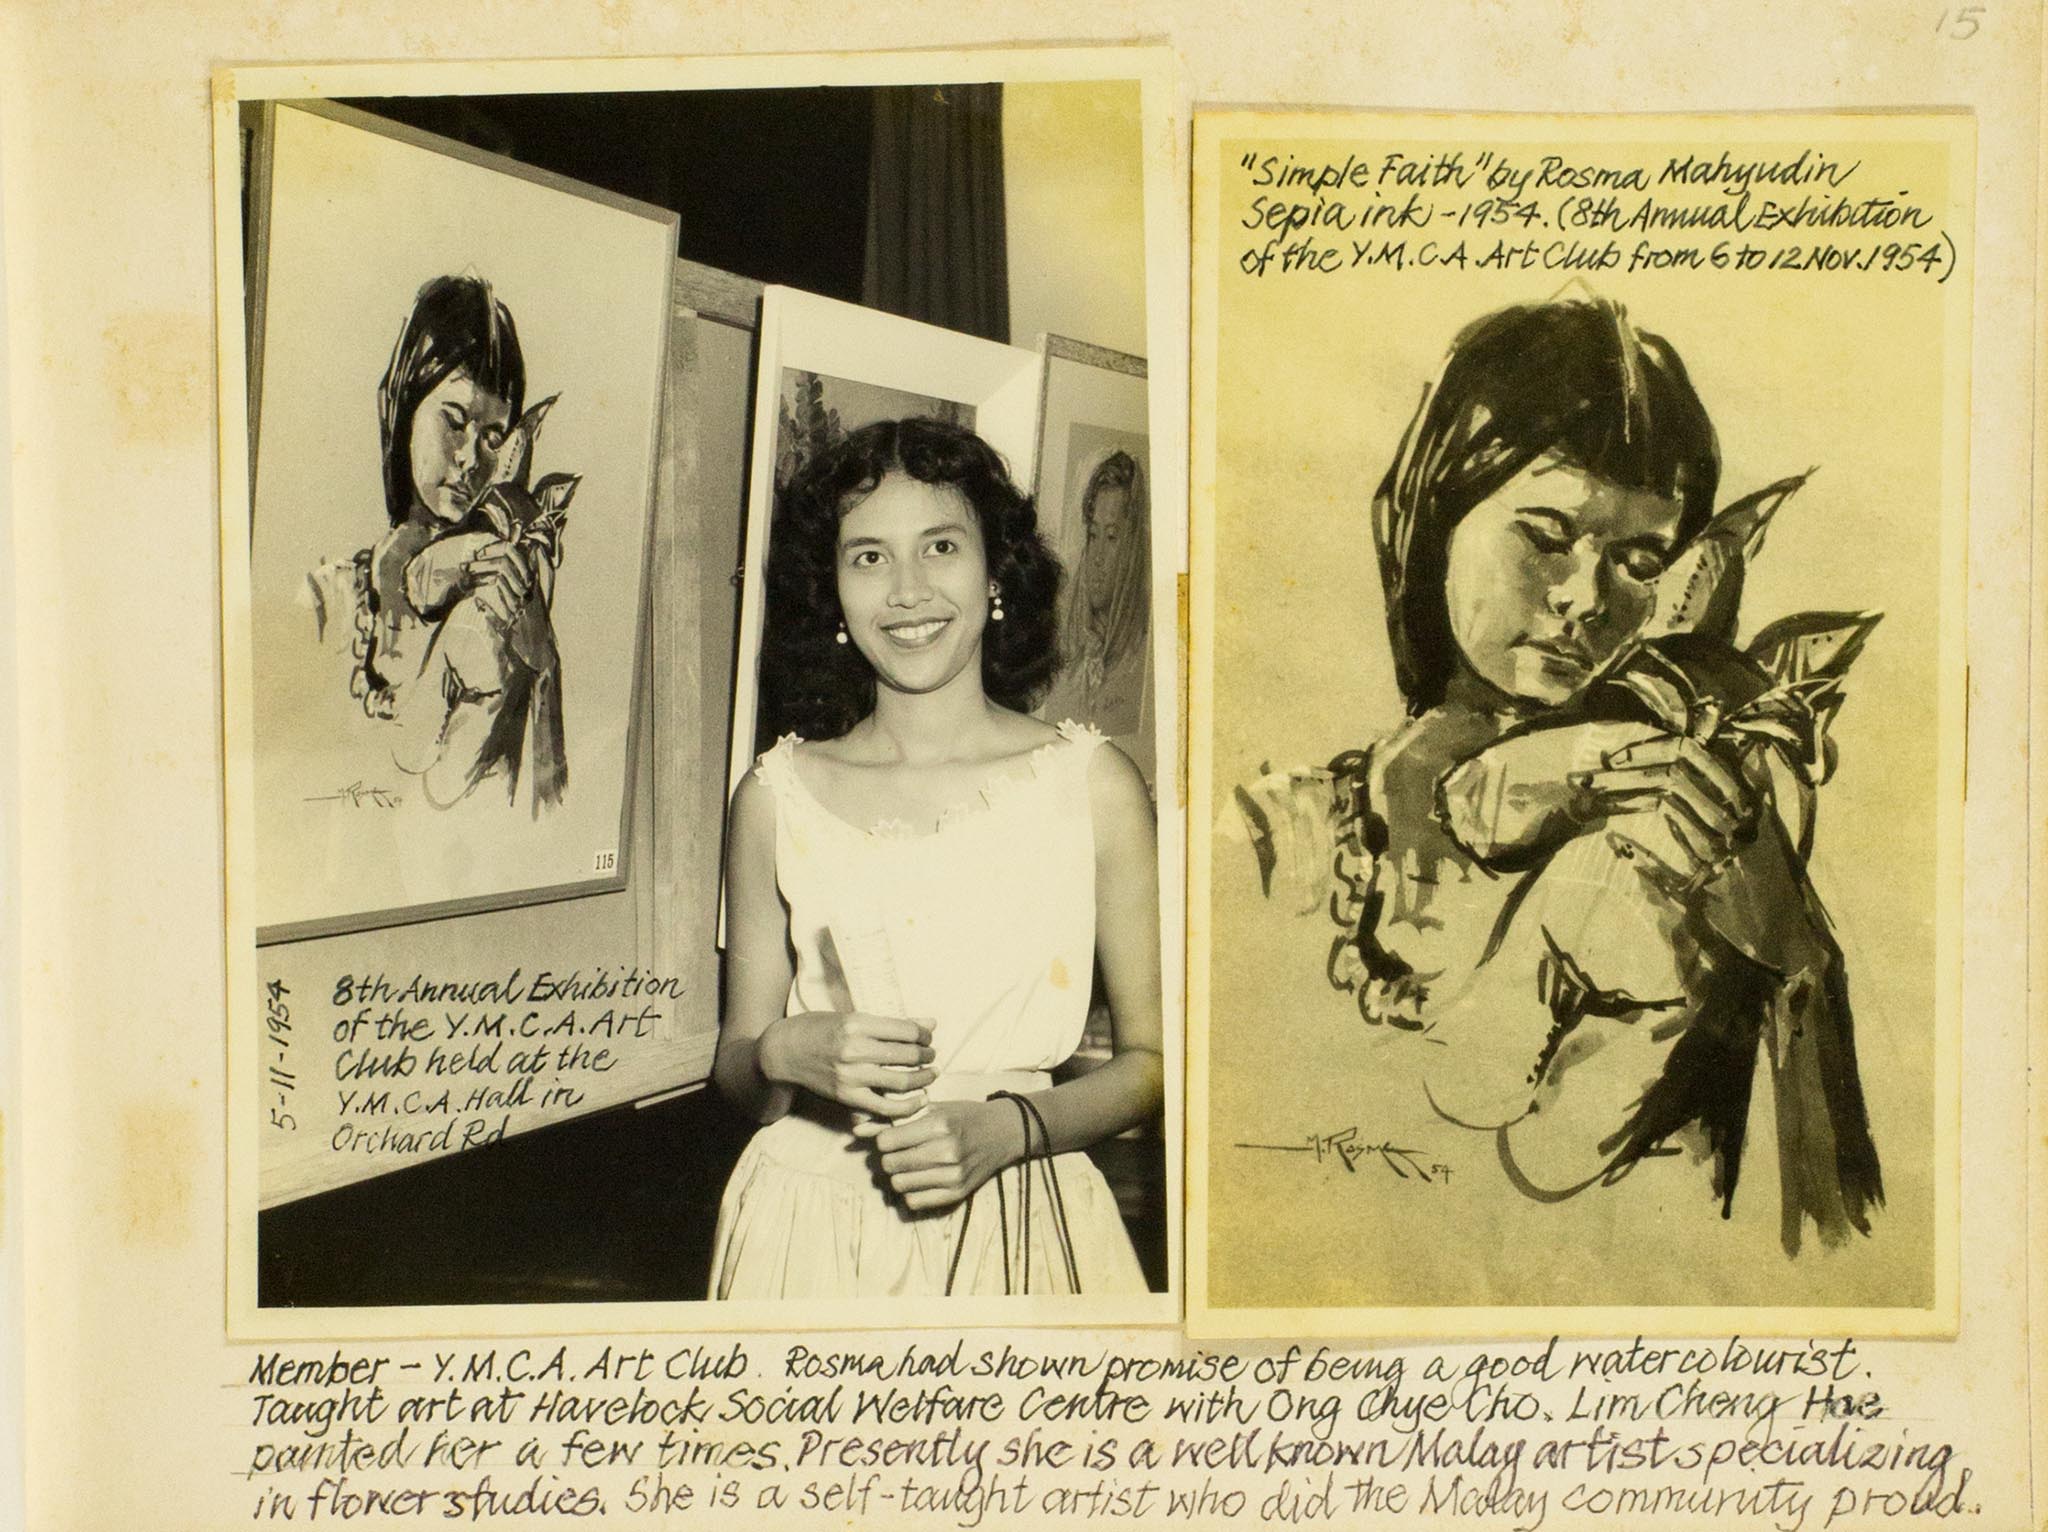 15
"Simple Faith" by Rosma Mahyudin
Sepia ink - 1954. (8th Annual Exhibition
of the Y.M.C.A. Art Club from 6 to 12 Nov. 1954)
M. Rosma 54
M. Rosma 54
115
5-11-1954
8th Annual Exhibition
of the Y.M.C.A. Art
Club held at the
Y.M.C.A. Hall in
Orchard Rd
Member - Y.M.C.A. Art Club. Rosma had shown promise of being a good watercolourist.
Taught art at Havelock Social Welfare Centre with Ong Chye Cho. Lim Cheng Hoe
painted her a few times. Presently she is a well known Malay artist specializing
in flower studies. She is a self-taught artist who did the Malay community proud.